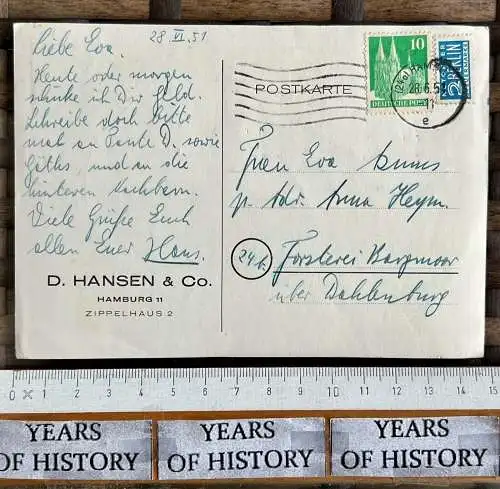 28 VI. 51
Liebe Eva.
Heute oder morgen
schicke ich Dir Geld.
Schreibe doch bitte
mal an Tante D. sowie
Gäths, und an die
hinteren Nachbarn.
Viele Grüße Euch
allen Euer Hans.
D. HANSEN & Co.
HAMBURG 11
ZIPPELHAUS 2
POSTKARTE
10
DEUTSCHE POST
2
BERLIN
28.6.51
17
e
Frau Eva
p. Adr. Anna Heym
24a
Försterei
über Dahlenburg
0 1 2 3 4 5 6 7 8 9 10 11 12 13 14 15
YEARS
OF HISTORY
YEARS
OF HISTORY
YEARS
OF HISTORY